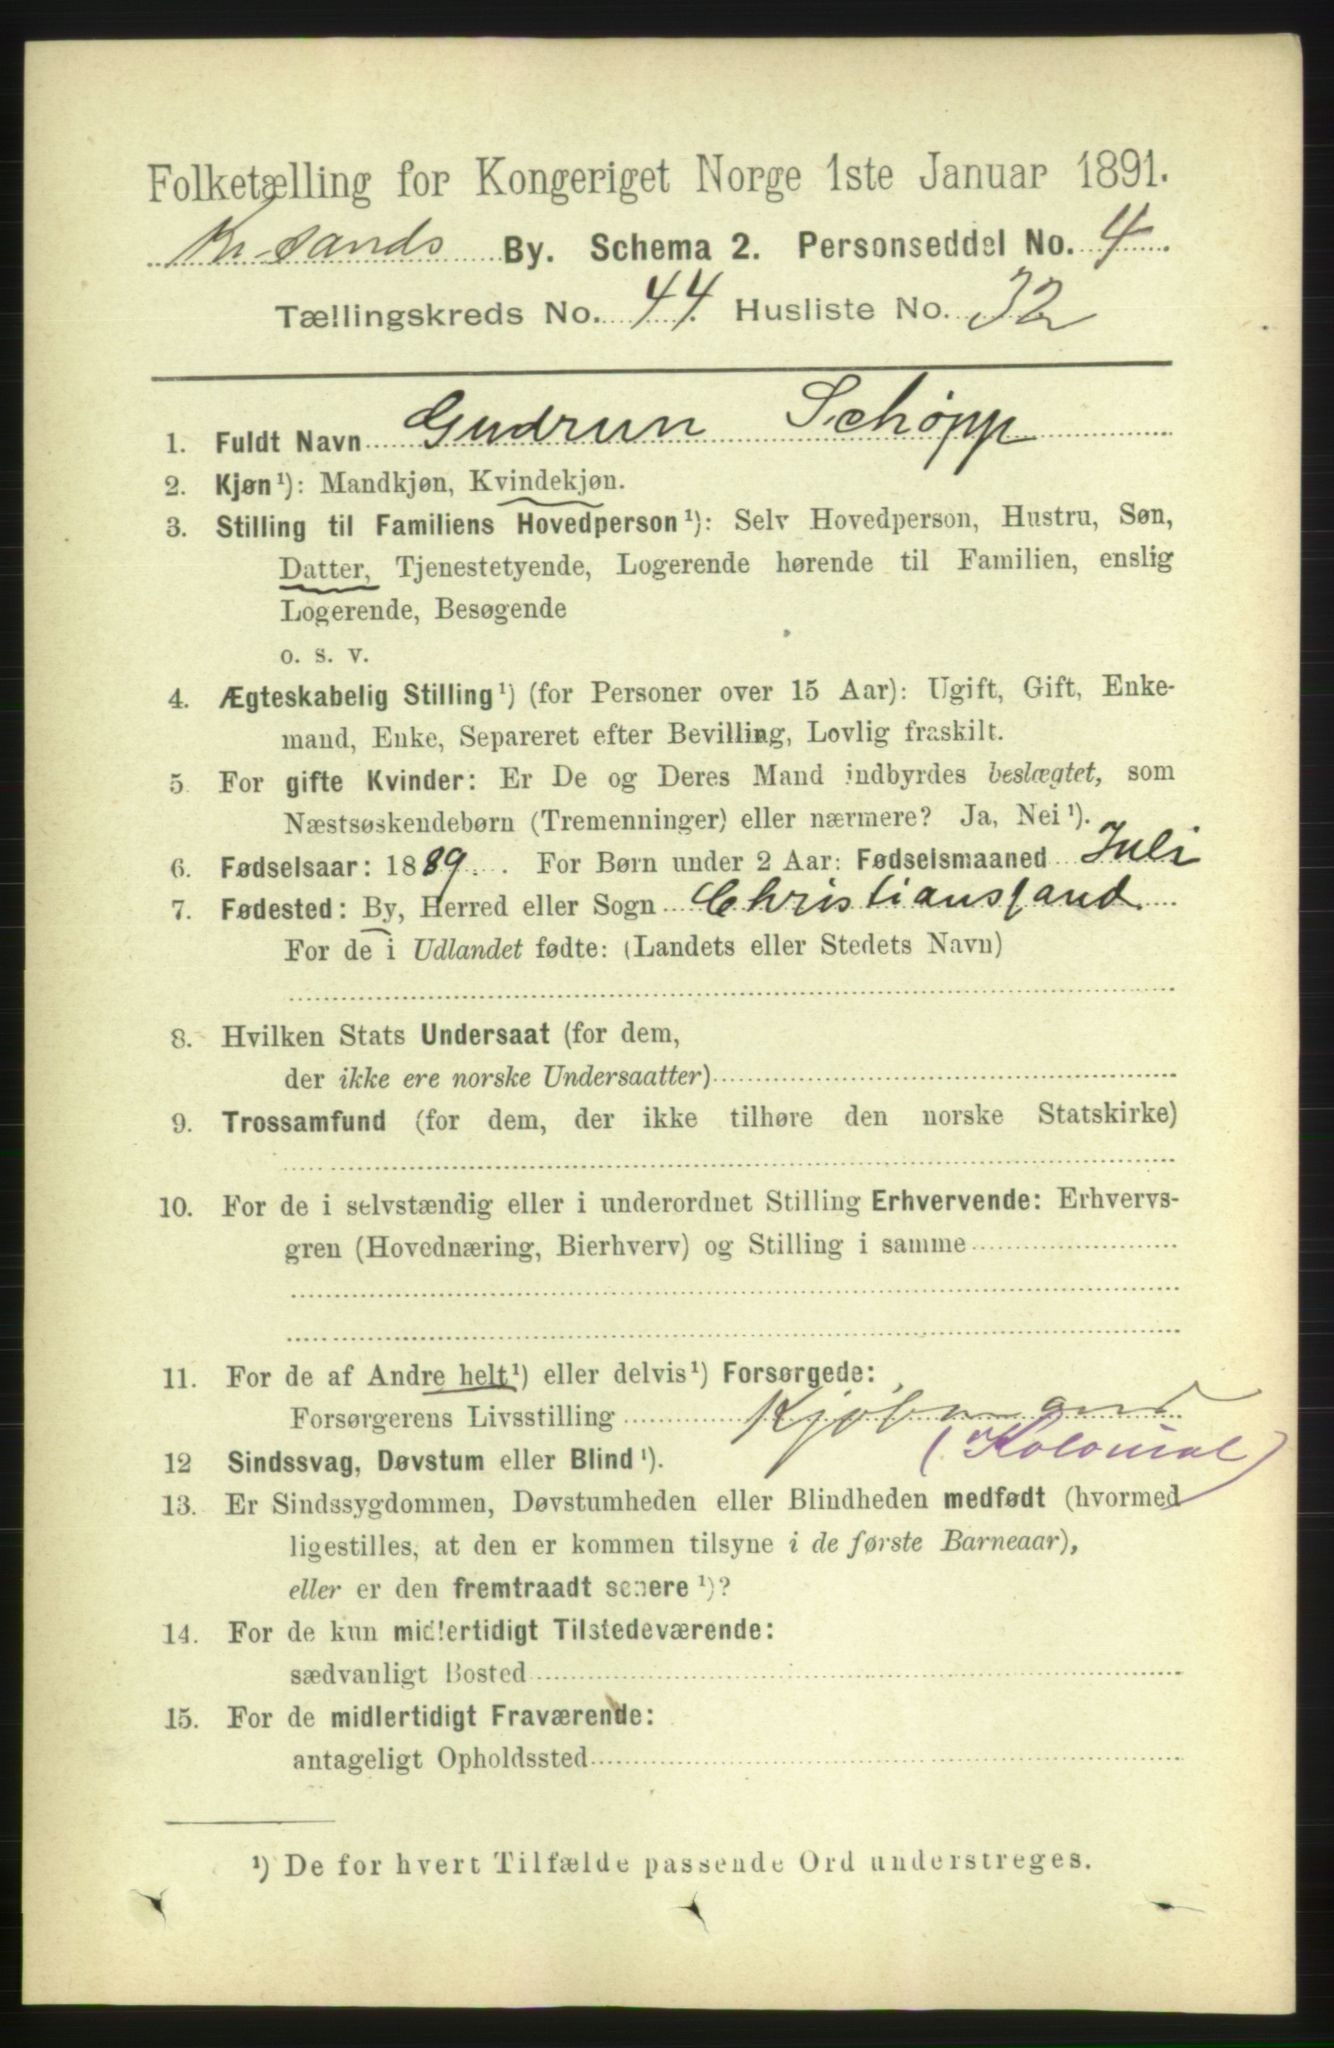 Folketælling for Kongeriget Norge 1ste Januar 1891.
Kr.sands By. Schema 2. Personseddel No. 4
Tællingskreds No. 44 Husliste No. 32
1. Fuldt Navn Gudrun Schøpp
2. Kjøn¹): Mandkjøn, Kvindekjøn.
3. Stilling til Familiens Hovedperson¹): Selv Hovedperson, Hustru, Søn,
Datter, Tjenestetyende, Logerende hørende til Familien, enslig
Logerende, Besøgende
o. s. v.
4. Ægteskabelig Stilling¹) (for Personer over 15 Aar): Ugift, Gift, Enke-
mand, Enke, Separeret efter Bevilling, Lovlig fraskilt.
5. For gifte Kvinder: Er De og Deres Mand indbyrdes beslægtet, som
Næstsøskendebørn (Tremenninger) eller nærmere? Ja, Nei¹).
6. Fødselsaar: 1889. For Børn under 2 Aar: Fødselsmaaned Juli
7. Fødested: By, Herred eller Sogn Christianssand
For de i Udlandet fødte: (Landets eller Stedets Navn)
8. Hvilken Stats Undersaat (for dem,
der ikke ere norske Undersaatter)
9. Trossamfund (for dem, der ikke tilhøre den norske Statskirke)
10. For de i selvstændig eller i underordnet Stilling Erhvervende: Erhvervs-
gren (Hovednæring, Bierhverv) og Stilling i samme
11. For de af Andre helt¹) eller delvis¹) Forsørgede:
Forsørgerens Livsstilling Kjøbmand
(Kolonial)
12 Sindssvag, Døvstum eller Blind¹).
13. Er Sindssygdommen, Døvstumheden eller Blindheden medfødt (hvormed
ligestilles, at den er kommen tilsyne i de første Barneaar),
eller er den fremtraadt senere¹)?
14. For de kun midlertidigt Tilstedeværende:
sædvanligt Bosted
15. For de midlertidigt Fraværende:
antageligt Opholdssted
¹) De for hvert Tilfælde passende Ord understreges.